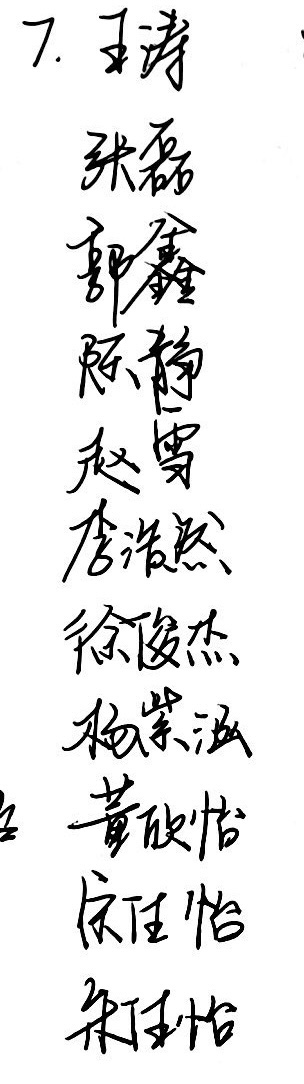 7. 王涛
张磊
郭鑫
陈静
赵雪
李浩然
徐俊杰
杨紫涵
黄欣怡
宋佳怡
朱佳怡